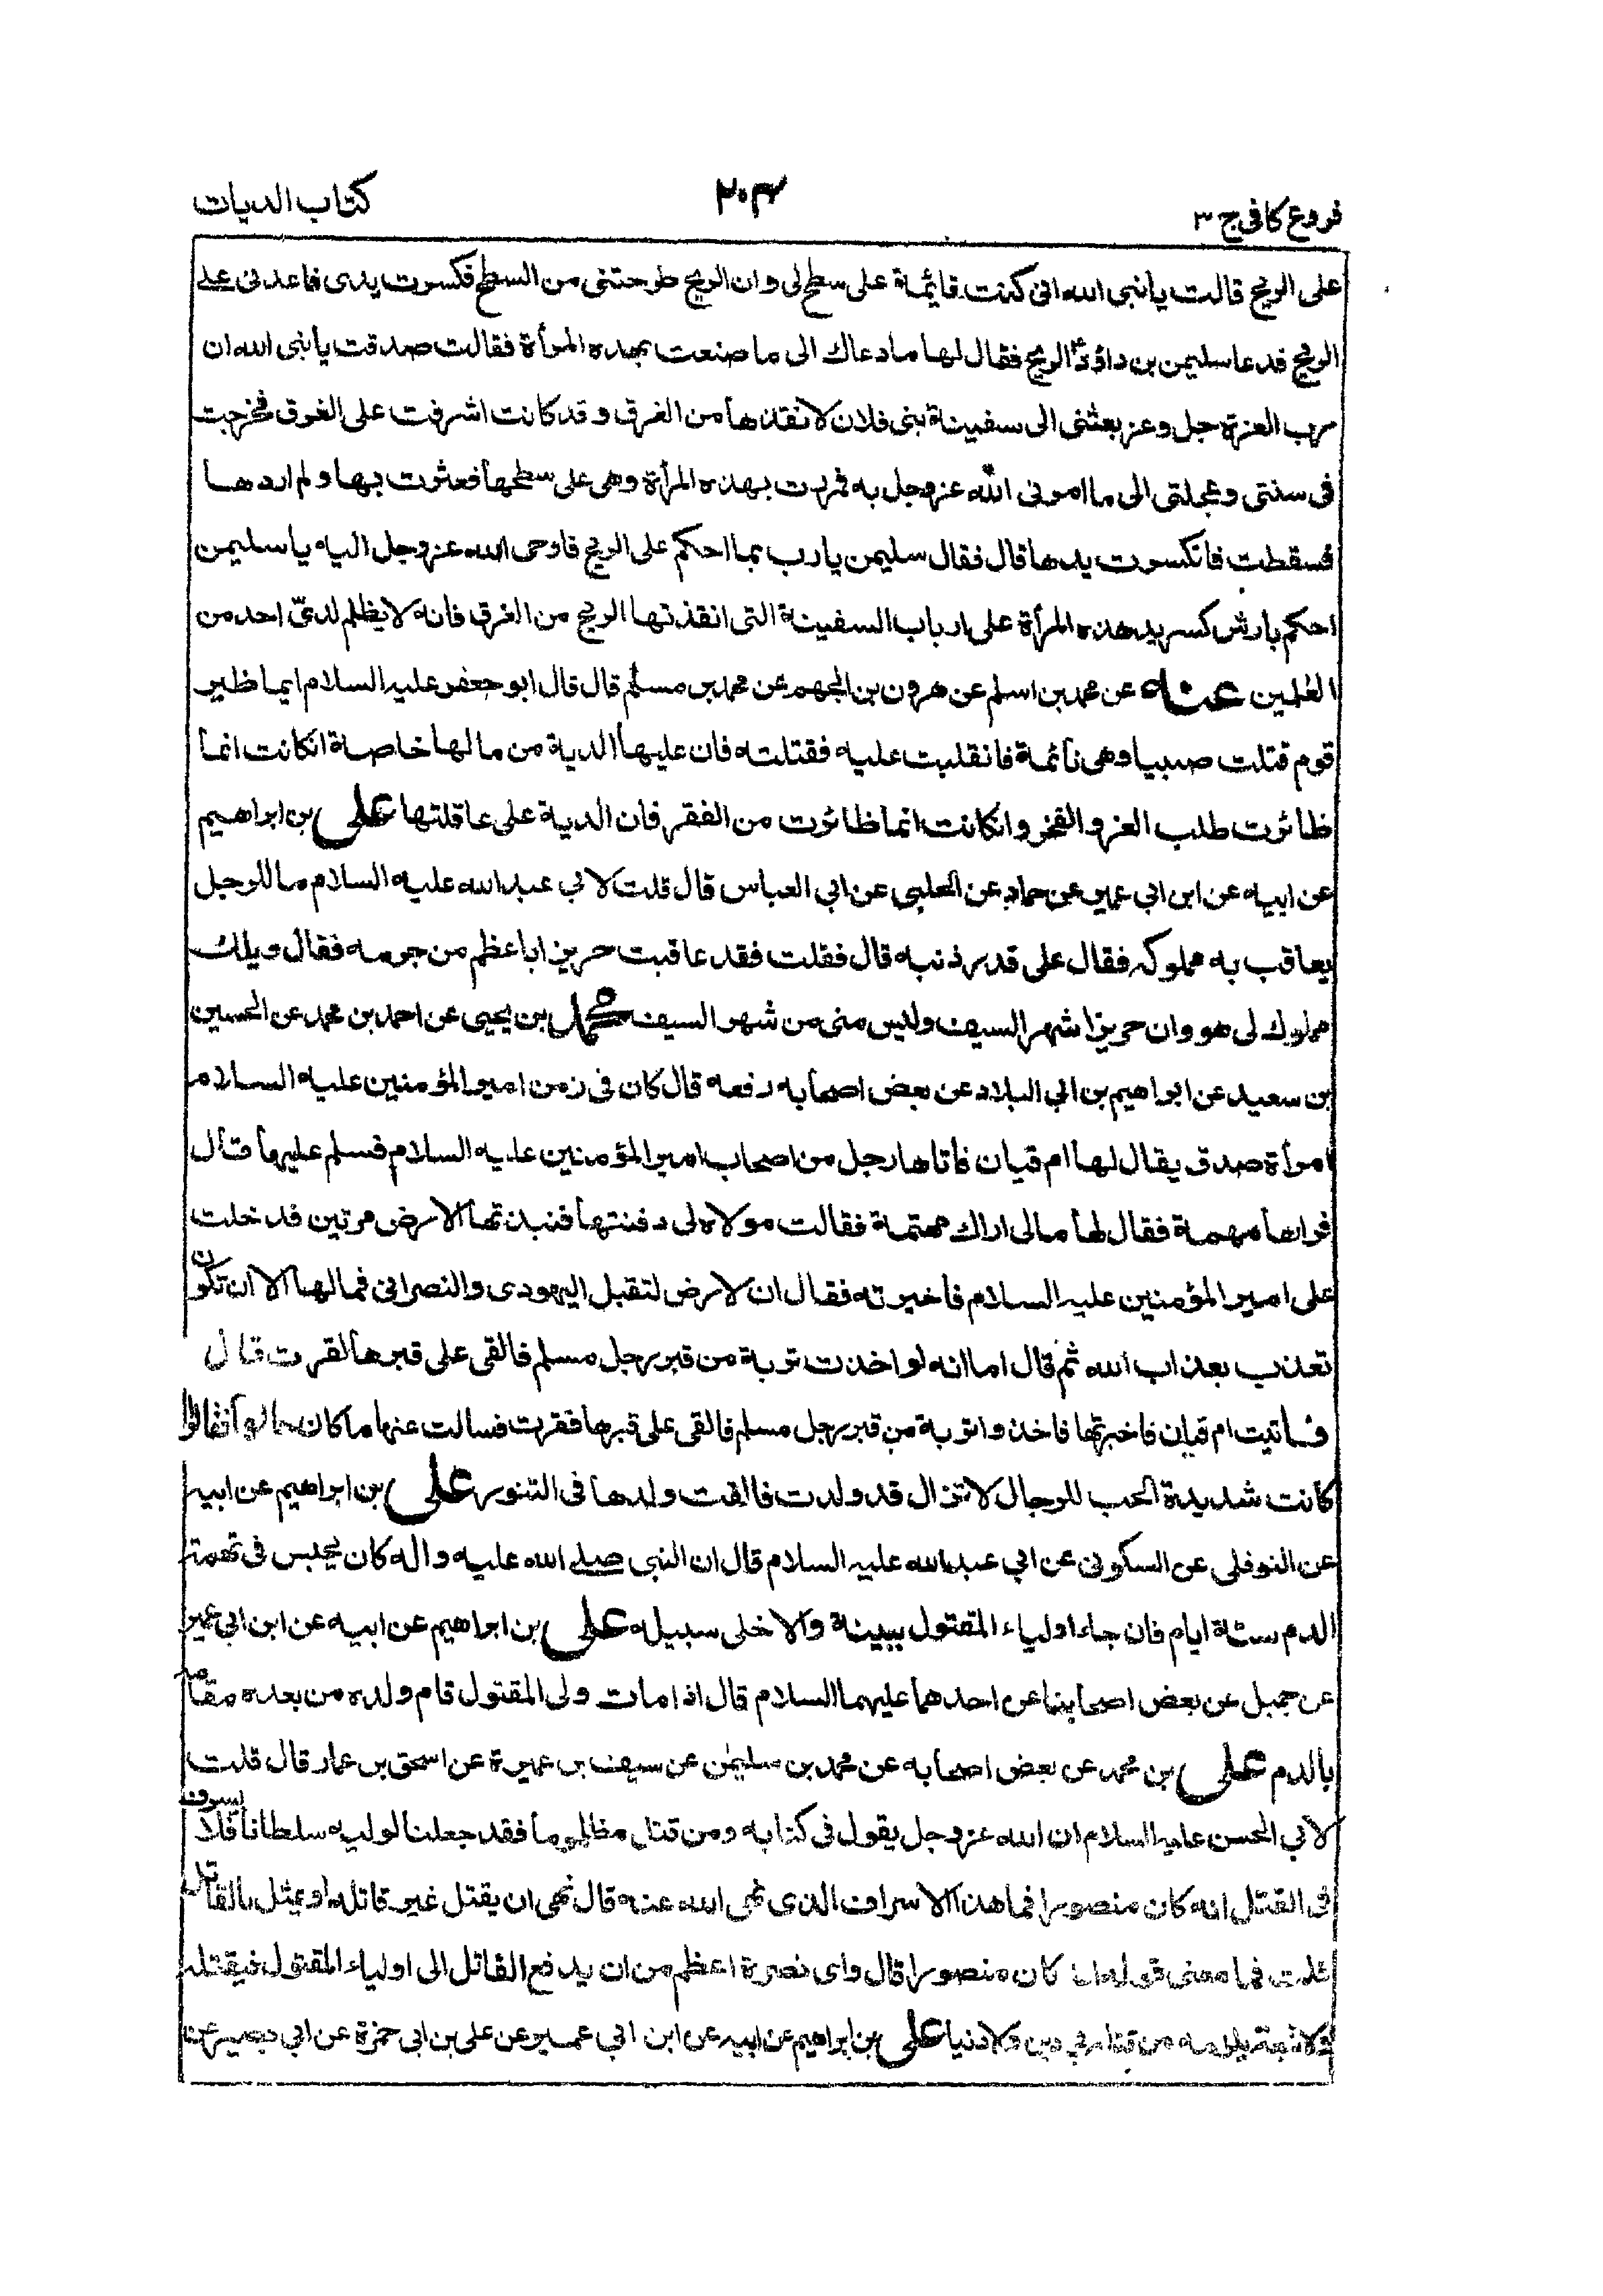 فروع كافى ج ٣
٢٠٤
كتاب الديات
على الريح قالت يا نبى الله انى كنت قائمة على سطح لى وان الريح طرحتنى من السطح فكسرت يدى فاعدنى على
الريح فدعا سليمن بن داؤد الريح فقال لها ما دعاك الى ما صنعت بهذه المرأة فقالت صدقت يا نبى الله ان
رب العزة جل وعز بعثنى الى سفينة بنى فلان لانقذها من الغرق وقد كانت اشرفت على الغرق فخرجت
فى سنتى وعجلتى الى ما امرنى الله عزوجل به فمررت بهذه المرأة وهى على سطحها فعثرت بها ولم اردها
فسقطت فانكسرت يدها قال فقال سليمن يارب بما احكم على الريح فاوحى الله عزوجل اليه يا سليمن
احكم بارش كسر يد هذه المرأة على ارباب السفينة التى انقذتها الريح من الغرق فانه لا يظلم لدىّ احد من
العٰلمين عنه عن محمد بن اسلم عن هرون بن الجهم عن محمد بن مسلم قال قال ابو جعفر عليه السلام ايما ظير
قوم قتلت صبيا وهى نائمة فانقلبت عليه فقتلته فان عليها الدية من مالها خاصة انكانت انما
ظائرت طلب العز والفخر وانكانت انما ظائرت من الفقر فان الدية على عاقلتها على بن ابراهيم
عن ابيه عن ابن ابي عمير عن حماد عن الحلبي عن ابي العباس قال قلت لابي عبد الله عليه السلام ما للرجل
يعاقب به مملوكه فقال على قدر ذنبه قال فقلت فقد عاقبت حريزا باعظم من جرمه فقال ويلك
مملوك لى هو وان حريزا شهر السيف وليس منى من شهر السيف محمد بن يحيى عن احمد بن محمد عن الحسين
بن سعيد عن ابراهيم بن ابي البلاد عن بعض اصحابه رفعه قال كان فى زمن امير المؤمنين عليه السلام
امرأة صدق يقال لها ام قيان فأتاها رجل من اصحاب امير المؤمنين عليه السلام فسلم عليها قال
فراها مهمة فقال لها مالى اراك مهتمة فقالت مولاة لى دفنتها فنبذتها الارض مرتين فدخلت
على امير المؤمنين عليه السلام فاخبرته فقال ان لارض لتقبل اليهودى والنصرانى فمالها الا ان تكون
تعذب بعذاب الله ثم قال اما انه لو اخذت تربة من قبر رجل مسلم فالقى على قبرها لقرت قال
فاتيت ام قيان فاخبرتها فاخذوا تربة من قبر رجل مسلم فالقى على قبرها فقرت فسالت عنها ما كان حالها فقالوا
كانت شديدة الحب للرجال لا تزال قد ولدت فالقت ولدها فى التنور على بن ابراهيم عن ابيه
عن النوفلى عن السكونى عن ابي عبد الله عليه السلام قال ان النبى صلى الله عليه واله كان يحبس فى تهمة
الدم ستة ايام فان جاء اولياء المقتول ببينة والا خلى سبيله على بن ابراهيم عن ابيه عن ابن ابي عمير
عن جميل عن بعض اصحابنا عن احدهما عليهما السلام قال اذا مات ولى المقتول قام ولده من بعده مقامه
بالدم على بن محمد عن بعض اصحابه عن محمد بن سليمٰن عن سيف بن عميرة عن اسحق بن عمار قال قلت
لابي الحسن عليه السلام ان الله عزوجل يقول فى كتابه ومن قتل مظلوما فقد جعلنا لوليه سلطانا فلا يسرف
فى القتل انه كان منصورا فما هذا الاسراف الذى نهى الله عنه قال نهى ان يقتل غير قاتله او يمثل بالقاتل
قلت فما معنى قوله انه كان منصورا قال واى نصرة اعظم من ان يدفع القاتل الى اولياء المقتول فيقتله
ولا تبعة يلزمه من قتله في دين ولا دنيا على بن ابراهيم عن ابيه عن ابن ابي عمير عن على بن ابي حمزة عن ابي بصير عن